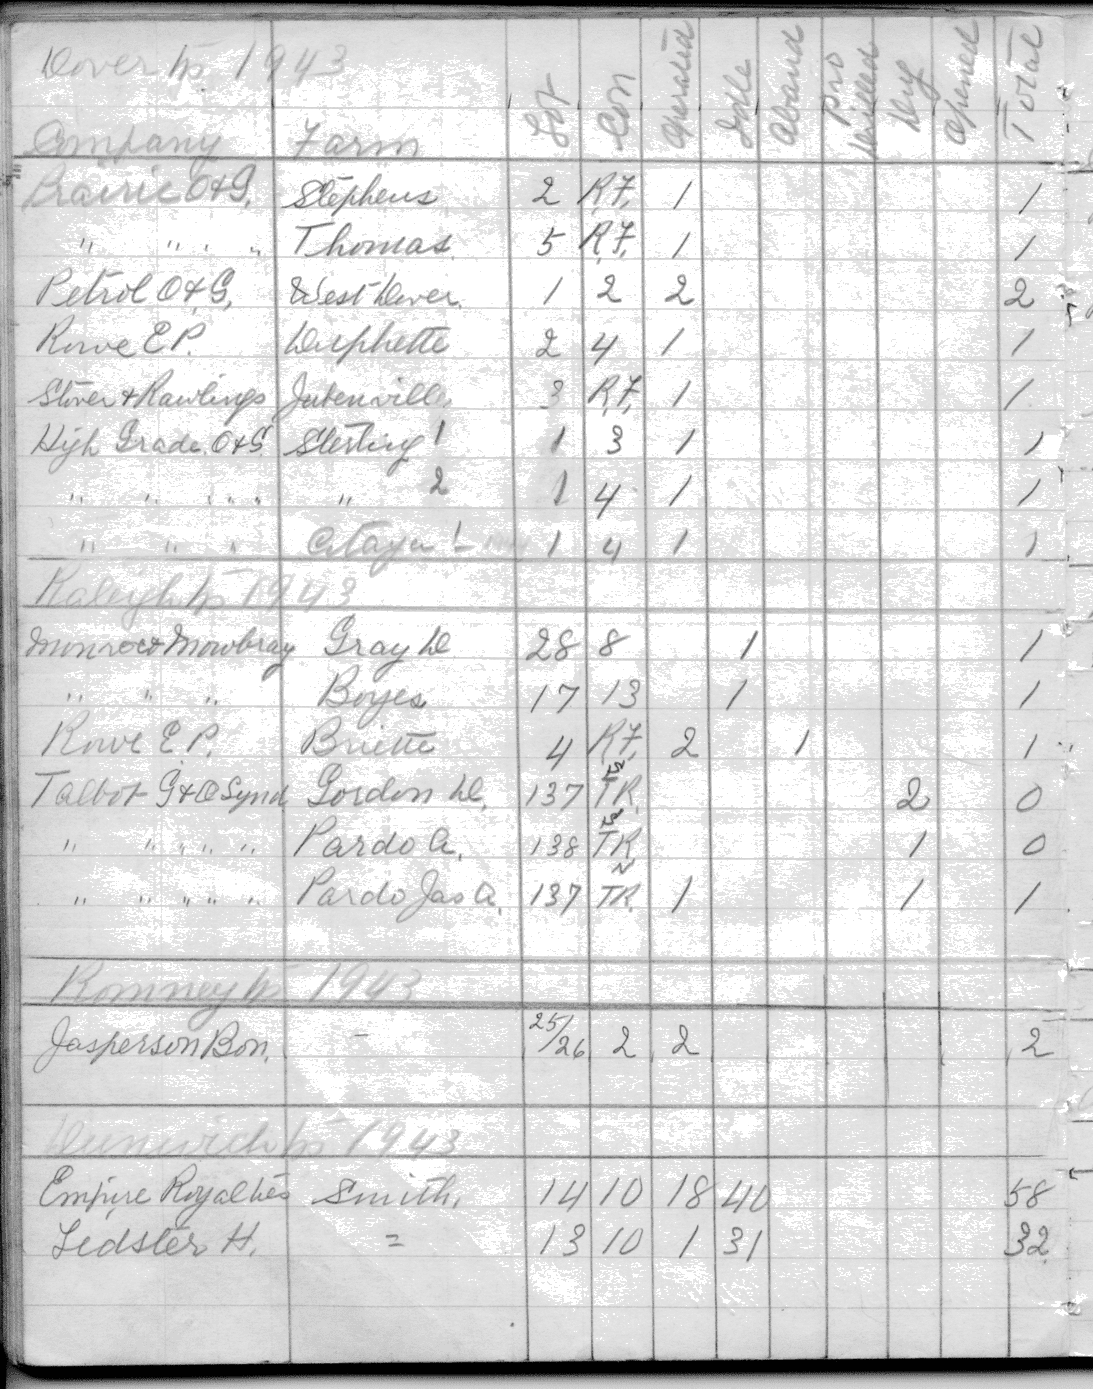 Dover Tp 1943
Company Farm Lot Con Operated Idle Aband Pro Drilled Dry Opened Total
Prairie O+G. Stephens 2 R.F. 1 1
" " " " Thomas. 5 R.F. 1 1
Petrol O+G. West Dover. 1 2 2 2
Rowe E P. Duphette 2 4 1 1
Stover + Rawlings Jubenville, 3 R.F. 1 1
High Grade O+G Sterling 1 1 3 1 1
" " " " " " 2 1 4 1 1
" " " 1 4 1 1
Raleigh Tp 1943
Munroe + Mowbray Gray D 28 8 1 1
" " " Boyes 17 13 1 1
Rowe E P. Briette 4 R.F. 2 1 1
Talbot G+O Synd Gordon D. 137 TR. 2 0
" " " " " Pardo A. 138 TR 1 0
" " " " " Pardo Jas A. 137 N TR. 1 1 1
Romney Tp 1943
Jasperson Bon. – 25/26 2 2 2
Dunwich Tp 1943
Empire Royalties Smith. 14 10 18 40 58
Ledster H. = 13 10 1 31 32